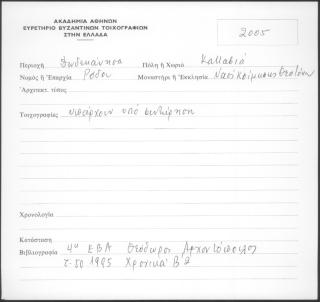 ΑΚΑΔΗΜΙΑ ΑΘΗΝΩΝ
ΕΥΡΕΤΗΡΙΟ ΒΥΖΑΝΤΙΝΩΝ ΤΟΙΧΟΓΡΑΦΙΩΝ
ΣΤΗΝ ΕΛΛΑΔΑ
2005
Περιοχή Δωδεκάνησα Πόλη ἤ Χωριό Καλαβιά
Νομός ἤ Ἐπαρχία Ρόδου Μοναστήρι ἤ Ἐκκλησία Ναός Κοίμησης Θεοτόκου
Ἀρχιτεκτ. τύπος
Τοιχογραφίες υπάρχουν υπό συντήρηση
Χρονολογία
Κατάσταση
Βιβλιογραφία 4η ΕΒΑ Θεόδωρος Αρχοντόπουλος
τ. 50 1995 Χρονικά Β 2